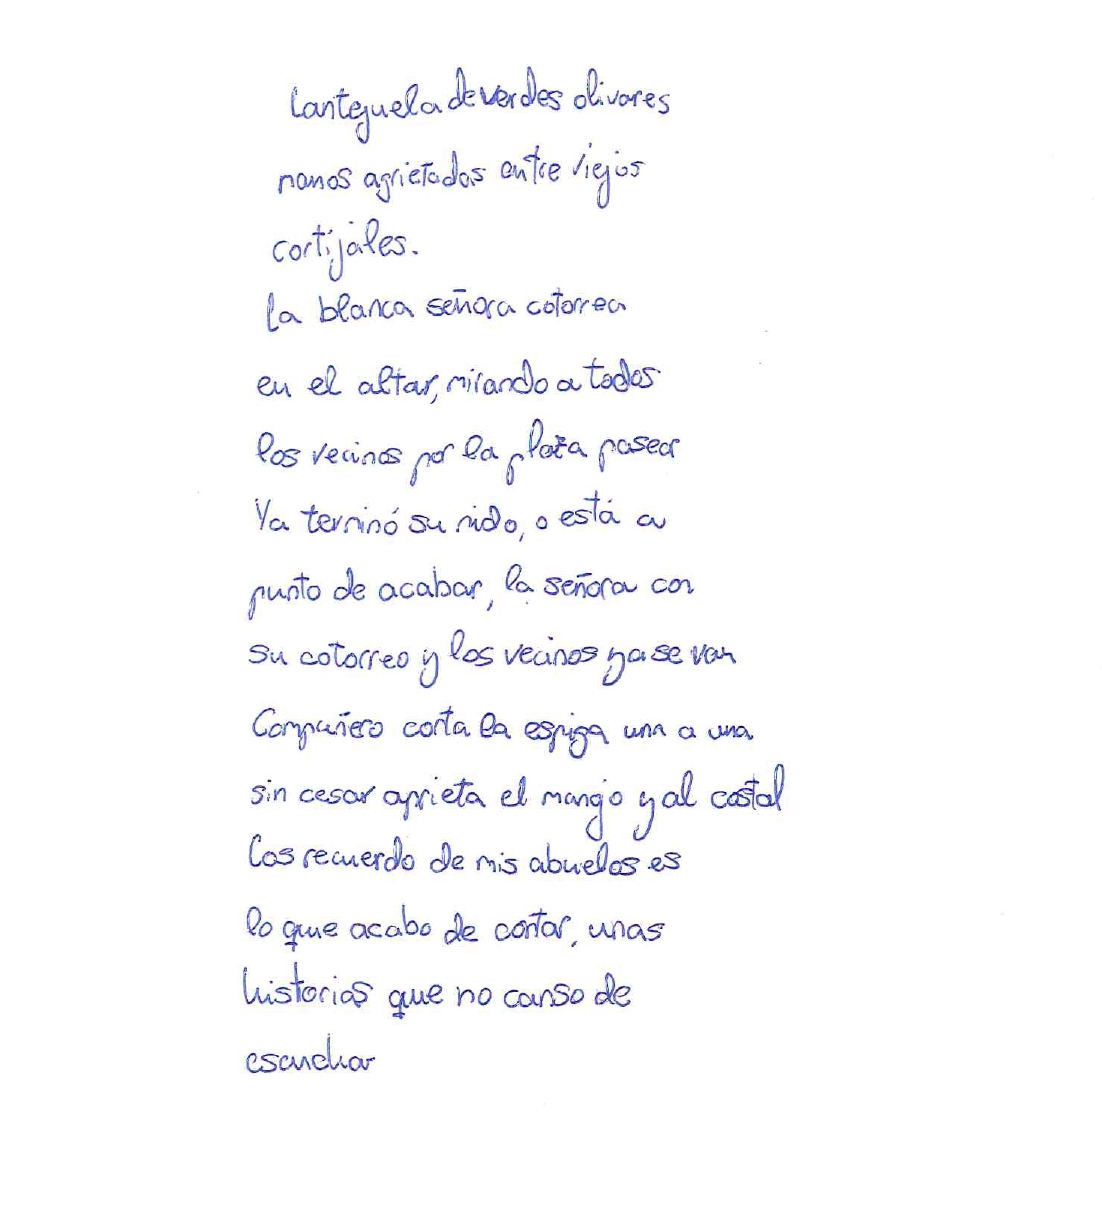 Lanteguela de verdes olivares
manos agrietadas entre viejos
cortijales.
La blanca señora cotorrea
en el altar, mirando a todos
los vecinos por la plaza pasear
Ya terminó su nido, o está a
punto de acabar, la señora con
su cotorreo y los vecinos ya se van
Compañero corta la espiga una a una
sin cesar aprieta el mango y al costal
Los recuerdo de mis abuelos es
lo que acabo de contar, unas
historias que no canso de
escuchar